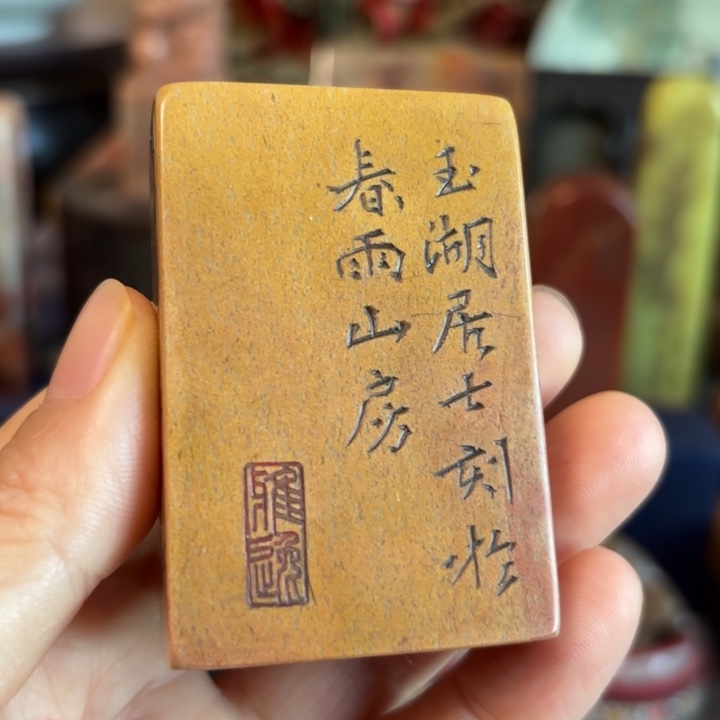 玉湖居士刻於
春雨山房
雅逸